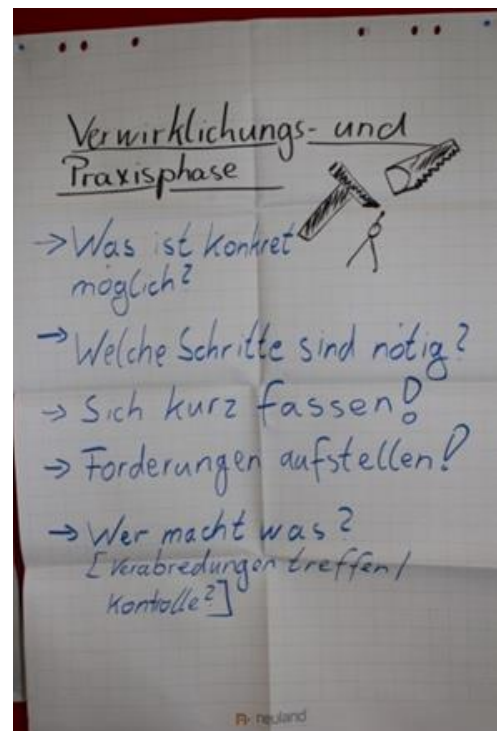 Verwirklichungs- und
Praxisphase
→ Was ist konkret
möglich?
→ Welche Schritte sind nötig?
→ Sich kurz fassen!
→ Forderungen aufstellen!
→ Wer macht was?
[Verabredungen treffen/
Kontrolle?]
neuland